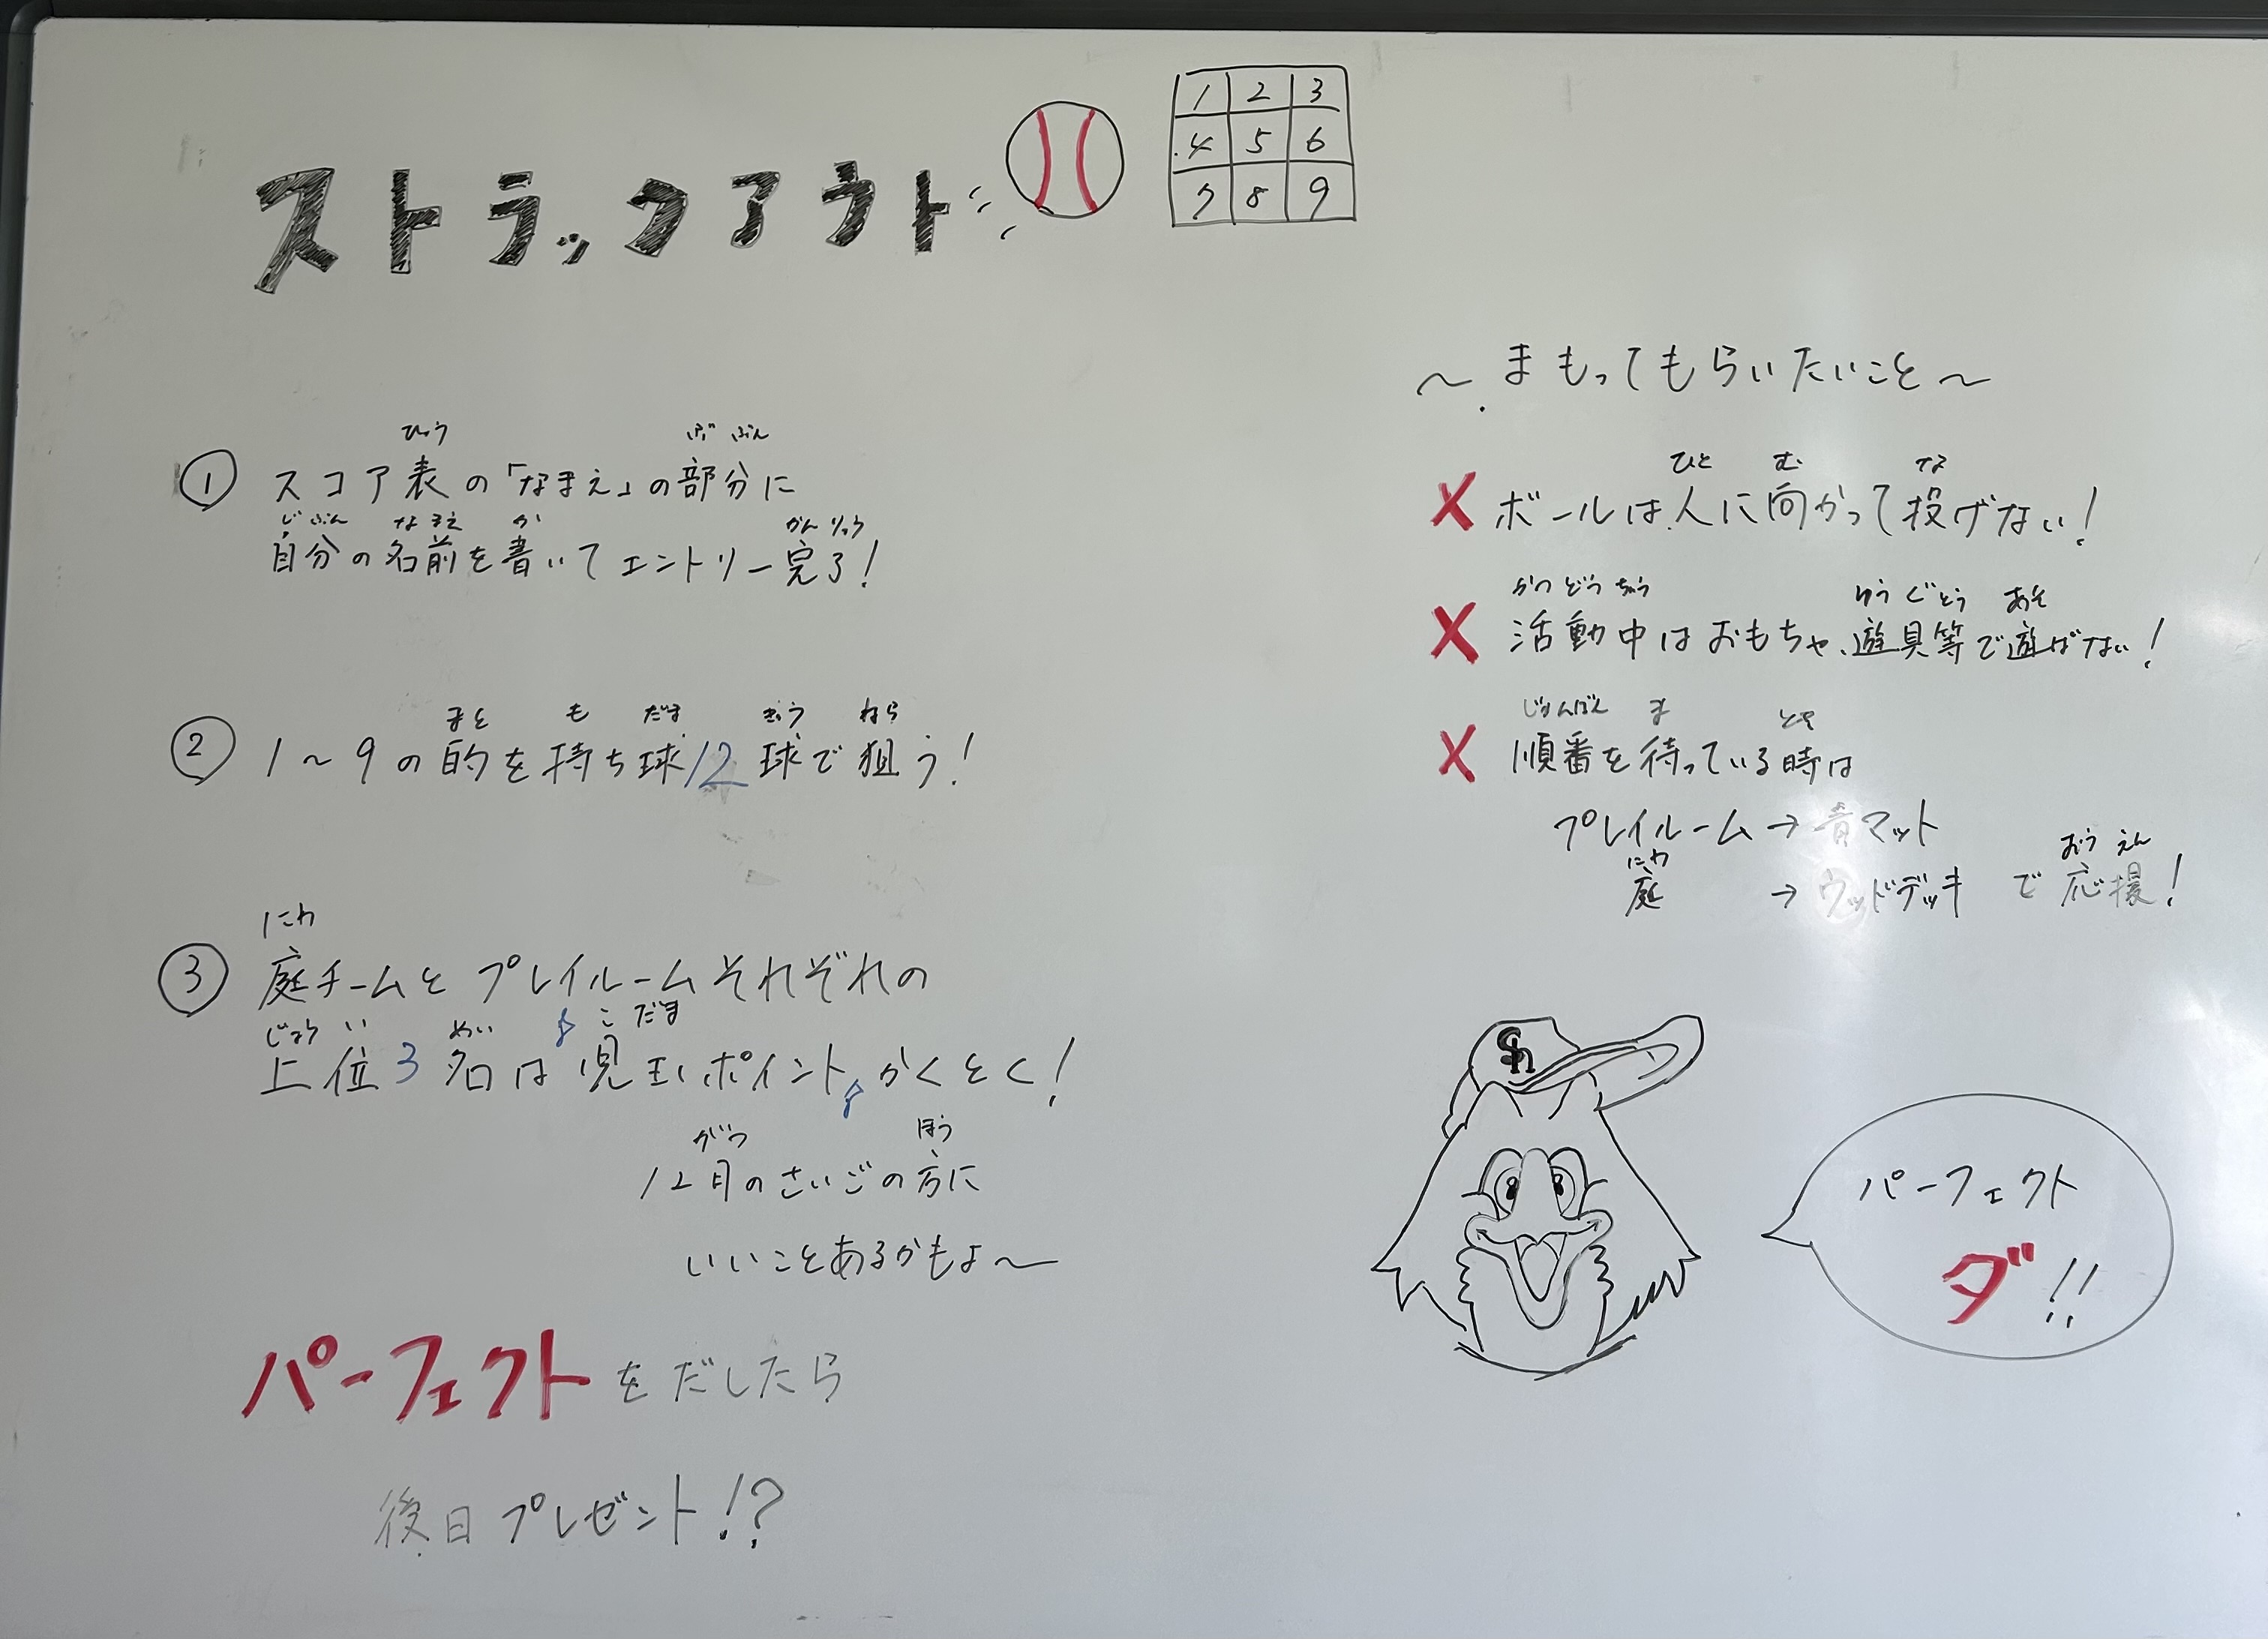 ストラックアウト
1 2 3
4 5 6
7 8 9
ひょう ぶ ぶん
① スコア表の「なまえ」の部分に
じ ぶん な まえ か かん りょう
自分の名前を書いてエントリー完了!
まと も だま きゅう ねら
② 1〜9の的を持ち球12球で狙う!
にわ
③ 庭チームとプレイルームそれぞれの
じょう い めい こ だま
上位3名は「児玉ポイント」かくとく!
がつ ほう
12月のさいごの方に
いいことあるかもよ〜
パーフェクトをだしたら
後日プレゼント!?
〜まもってもらいたいこと〜
ひと む な
✗ ボールは人に向かって投げない!
かつ どう ちゅう ゆう ぐ とう あそ
✗ 活動中はおもちゃ、遊具等で遊ばない!
じゅんばん ま とき
✗ 順番を待っている時は
プレイルーム→青マット
にわ おう えん
庭 →ウッドデッキ で応援!
Sh
パーフェクト
ダ!!